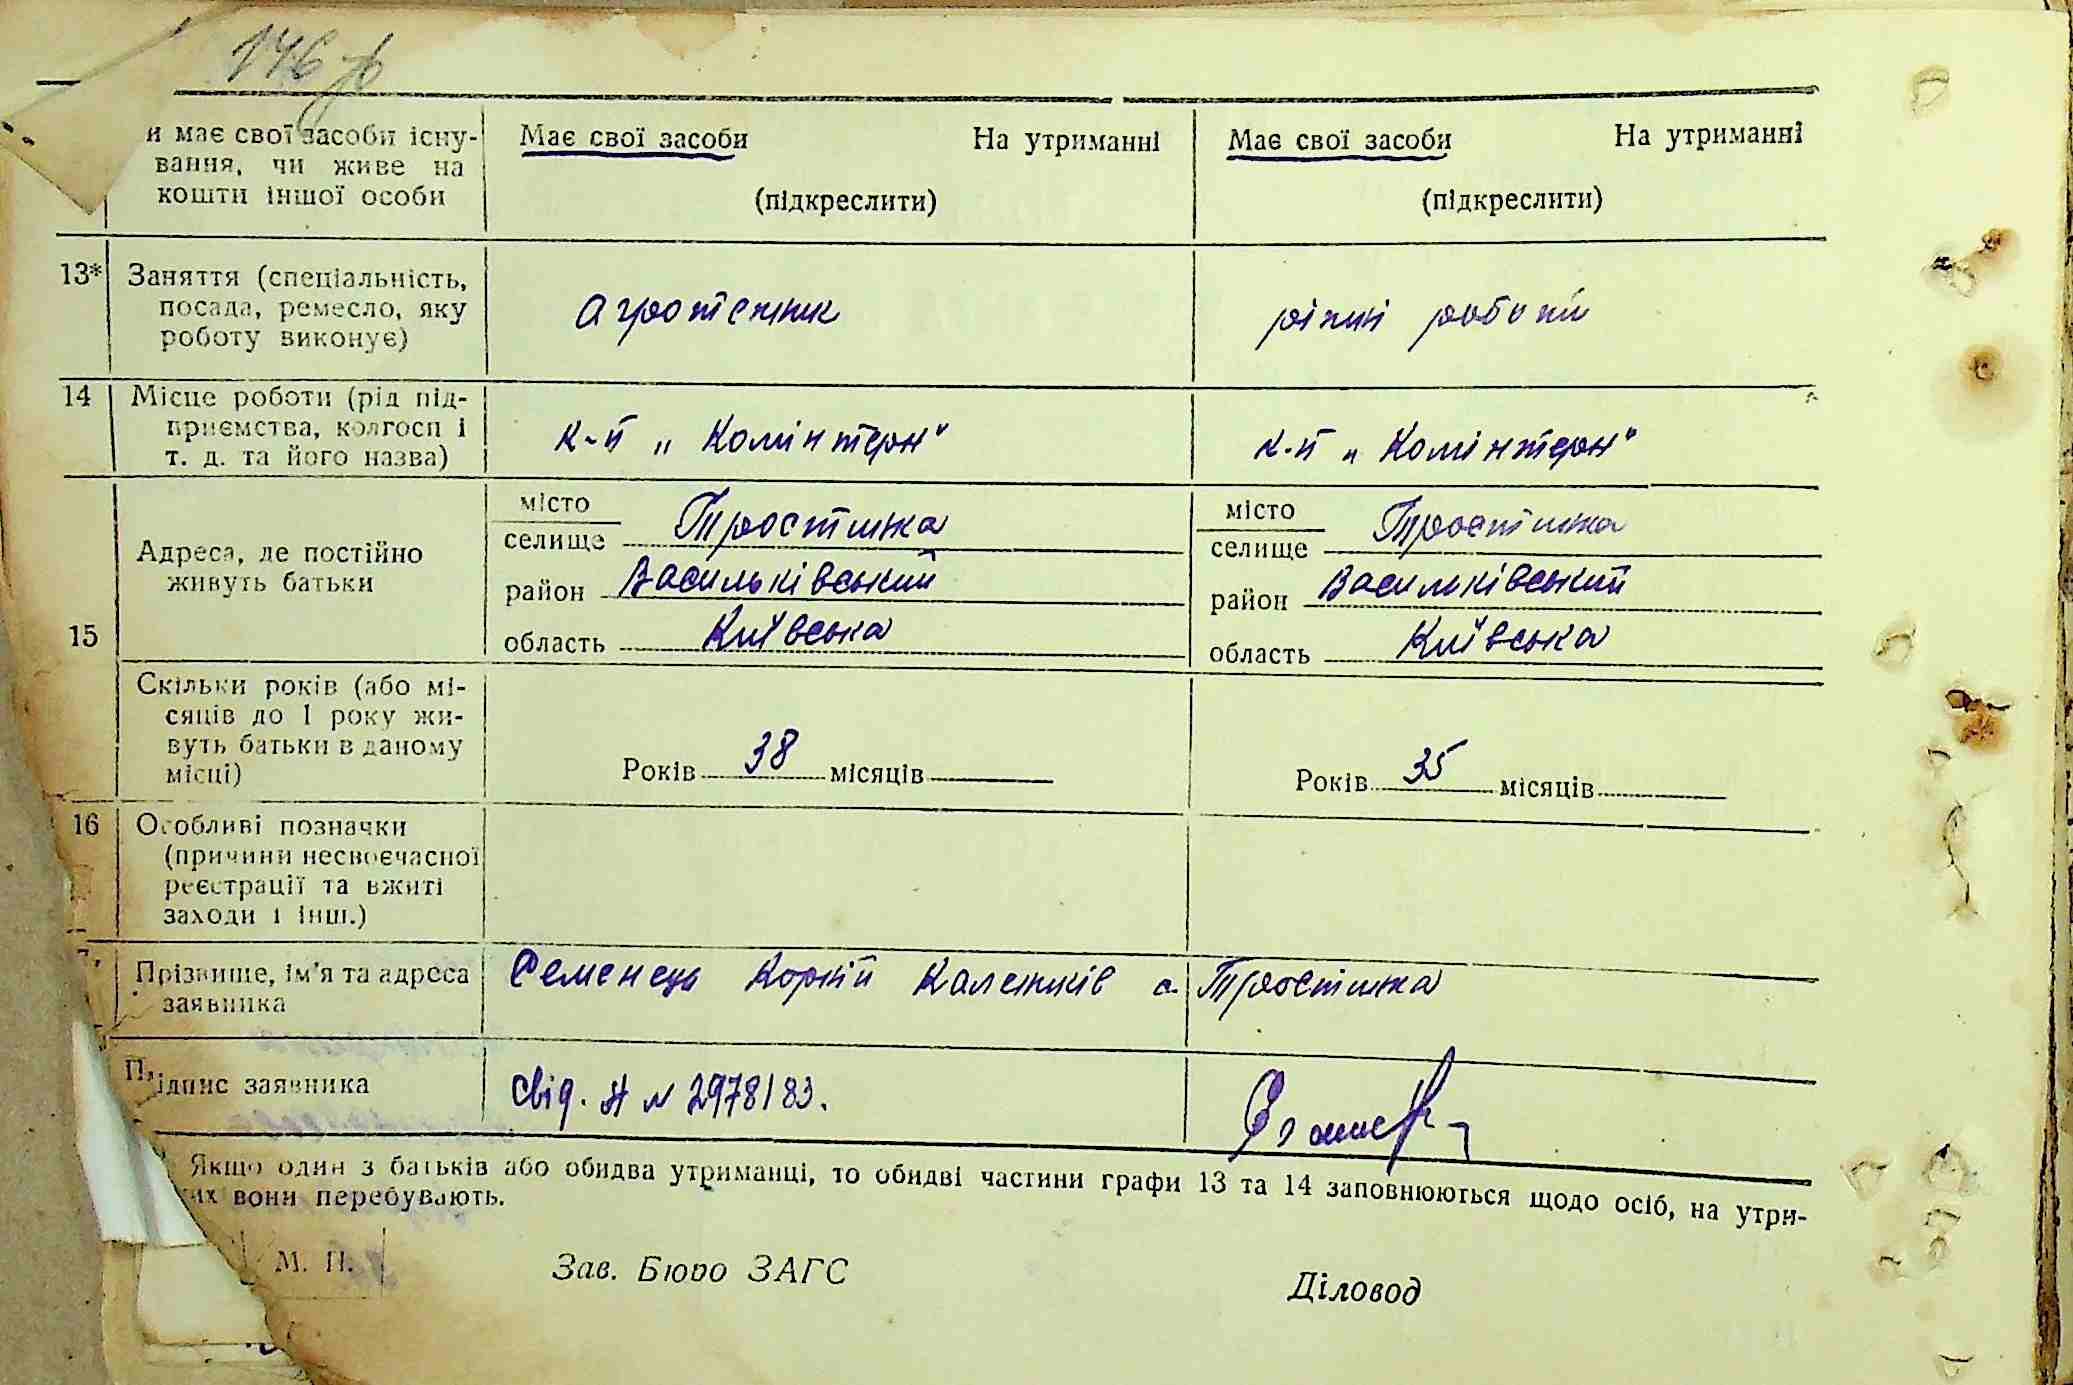 и має свої засоби існу-
вання, чи живе на
кошти іншої особи
Має свої засоби На утриманні
(підкреслити)
Має свої засоби На утриманні
(підкреслити)
13* Заняття (спеціальність,
посада, ремесло, яку
роботу виконує)
агротехник
різні роботи
14 Місце роботи (рід під-
приємства, колгосп і
т. д. та його назва)
к-п „Комінтерн"
к-п „Комінтерн"
15
Адреса, де постійно
живуть батьки
місто
селище Тростинка
район Васильківський
область Київська
місто
селище Тростинка
район Васильківський
область Київська
Скільки років (або мі-
сяців до 1 року жи-
вуть батьки в даному
місці)
Років 38 місяців
Років 35 місяців
16 Особливі позначки
(причини несвоєчасної
реєстрації та вжиті
заходи і інш.)
Прізвище, ім'я та адреса
заявника
Семенець Корній Калеників с. Тростинка
Підпис заявника
свід. № 2978183.
Якщо один з батьків або обидва утриманці, то обидві частини графи 13 та 14 заповнюються щодо осіб, на утри-
их вони перебувають.
М. П.
Зав. Бюро ЗАГС
Діловод